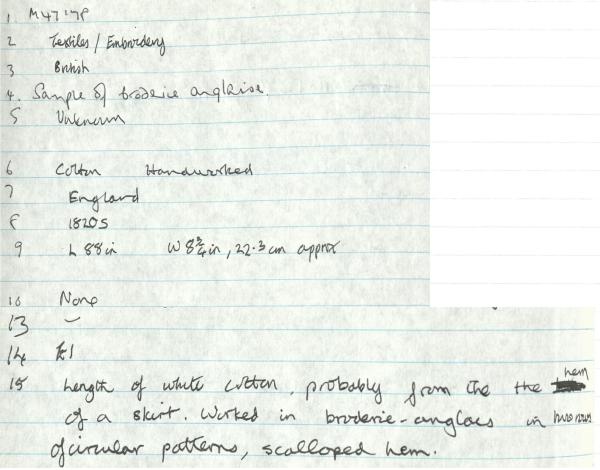 1 M47'78
2 Textiles / Embroidery
3 British
4. Sample of broderie anglaise.
5 Unknown
6 Cotton Handworked
7 England
8 1820s
9 L 88in W 8¾in, 22.3 cm approx
10 None
13 –
14
15 Length of white cotton, probably from the the hem
of a skirt. Worked in broderie-anglaes in two rows
of circular patterns, scalloped hem.